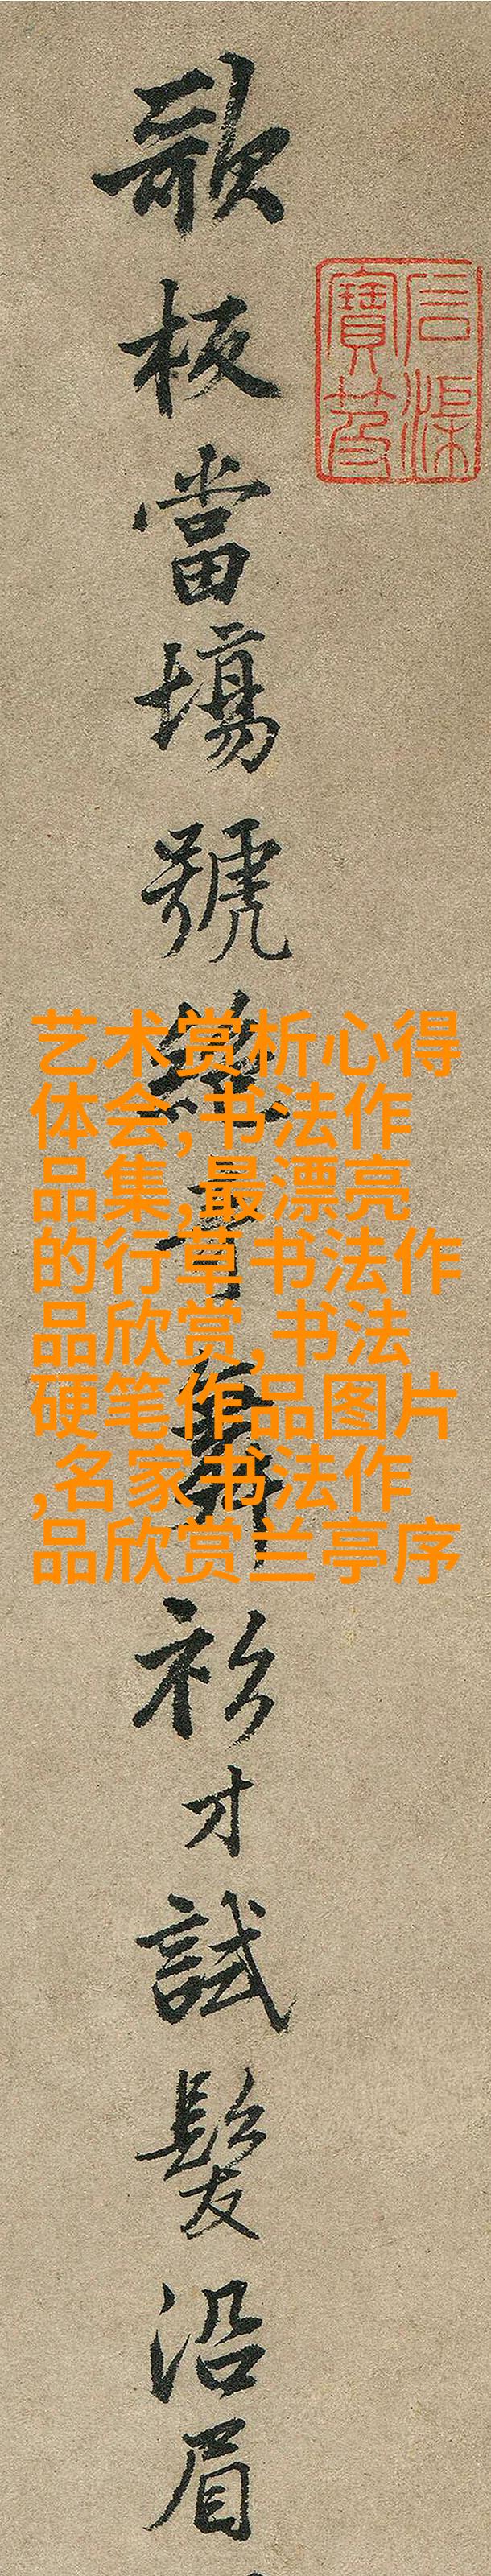 歌板當場號絶奇舞衫才試髮沿眉
石渠寶笈
艺术赏析心得
体会,书法作
品集,最漂亮
的行草书法作
品欣赏,书法
硬笔作品图片
,名家书法作
品欣赏兰亭序